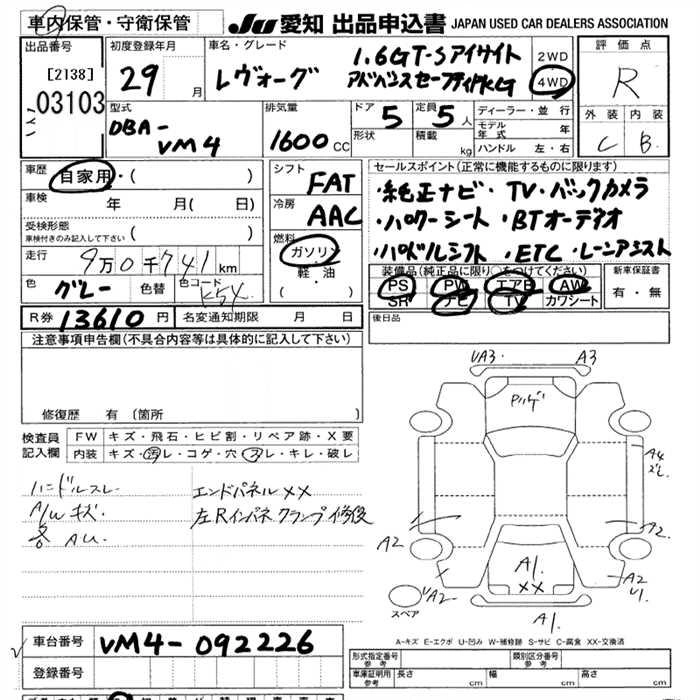 車内保管・守衛保管
JU 愛知 出品申込書 JAPAN USED CAR DEALERS ASSOCIATION
出品番号
[2138]
03103
初度登録年月
29 月
車名・グレード
レヴォーグ
1.6GT-Sアイサイト
アドバンスセーフティPKG
2WD
4WD
評価点
R
外装 内装
C B
型式
DBA-
VM4
排気量
1600 CC
ドア 5
形状
定員 5 人
積載 kg
ディーラー・並行
モデル年式 年
ハンドル 左・右
車歴
自家用・( )
車検 年 月( 日)
受検形態
車検付きのみ記入して下さい ( )
走行 9万0千741km
色 グレー 色替 色コード
R券 13610 円 名変通知期限 月 日
シフト
FAT
冷房
AAC
燃料
ガソリン
軽・油
( ・ )
セールスポイント(正常に機能するものに限ります)
・純正ナビ・TV・バックカメラ
・パワーシート・BTオーディオ
・パドルシフト・ETC・レーンアシスト
装備品(純正品に限り○をつけてください)
PS PW エアB AW
SR ナビ TV カワシート
新車保証書
有・無
後日品
注意事項申告欄(不具合内容等は具体的に記入して下さい)
修復歴 有 (箇所 )
検査員
記入欄
FW キズ・飛石・ヒビ割・リペア跡・X要
内装 キズ・汚レ・コゲ・穴・スレ・キレ・破レ
ハンドルスレ
A/Wキズ
各AU
エンドパネルXX
左Rインパネクランプ修復
UA3 A3
A4
A2 A2
UA2 A2
U1
A1
XX
A1
スペア
A-キズ E-エクボ U-凹み W-補修跡 S-サビ C-腐食 XX-交換済
車台番号 VM4-092226
登録番号
形式指定番号
参考
類別区分番号
参考
車庫証明用
参考
長さ cm 幅 cm 高さ cm